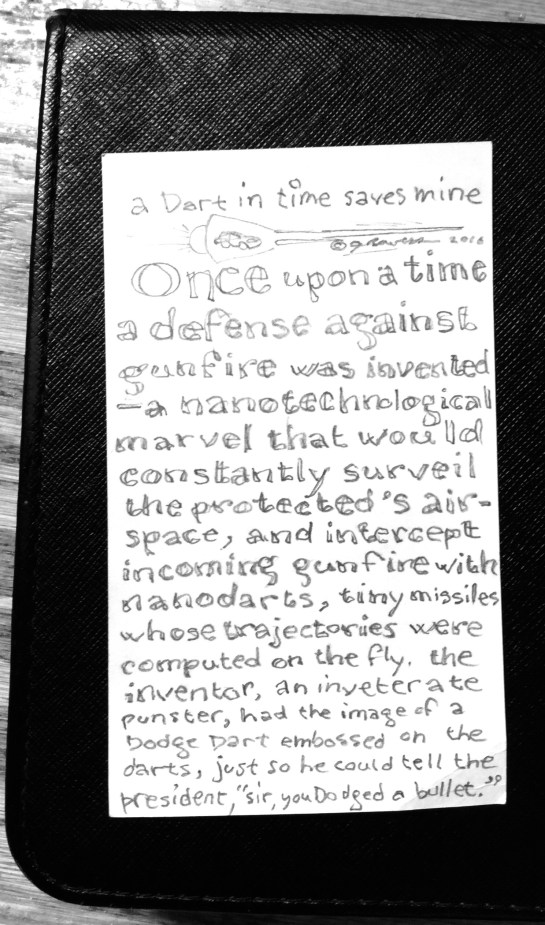 a Dart in time saves mine
2016
Once upon a time
a defense against
gunfire was invented
—a nanotechnological
marvel that would
constantly surveil
the protected's air-
space, and intercept
incoming gunfire with
nanodarts, tiny missiles
whose trajectories were
computed on the fly. the
inventor, an inveterate
punster, had the image of a
Dodge Dart embossed on the
darts, just so he could tell the
president, "sir, you Dodged a bullet."